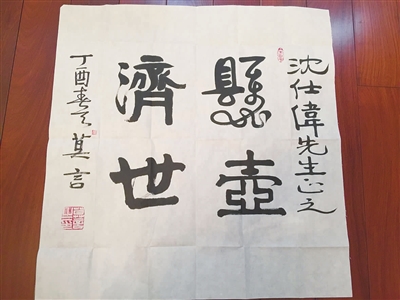 沈仕偉先生正之
懸壺
濟世
丁酉春天莫言